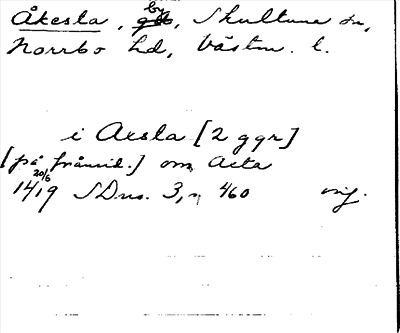 Åkesla, by, Skultuna sn,
Norrbo hd, Västm. l.
i Aesla [2 ggr]
[på frånsid.] om Acta
20/6
1419 SDns. 3, s 460 orig.